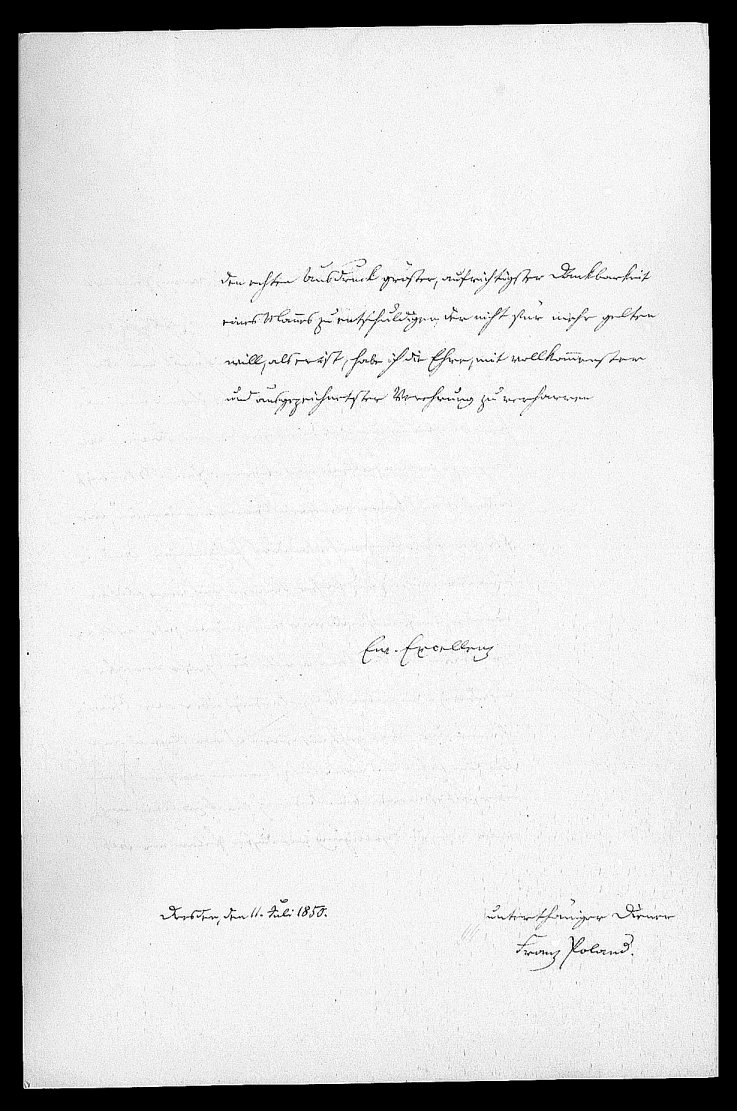 den echten Ausdruck größter, aufrichtigster Dankbarkeit
eines Mannes zu entschuldigen, der nicht für mehr gelten
will, als er ist, habe ich die Ehre, mit vollkommenster
und ausgezeichnetster Verehrung zu verharren
Ew. Excellenz
Dresden, den 11. Juli 1850.
unterthäniger Diener
Franz Poland.